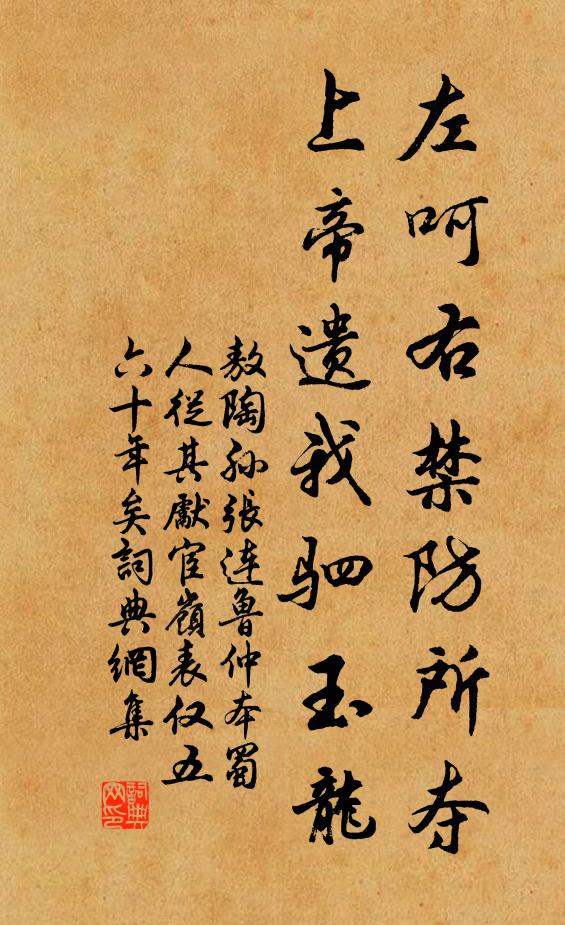 左呵右禁防所夺
上帝遗我驷玉龍
敖陶孙張连鲁仲本蜀
人從其獻宦嶺表仅五
六十年矣詞典網集
詞典
网印